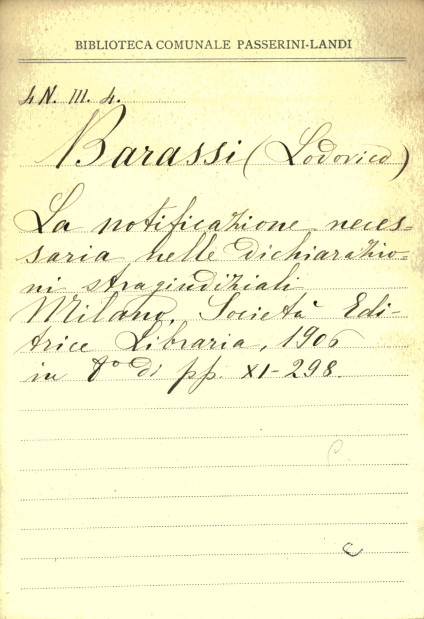 BIBLIOTECA COMUNALE PASSERINI-LANDI
4 N. III. 4.
Barassi (Lodovico)
La notificazione neces-
saria nelle dichiarazio-
ni stragiudiziali
Milano, Società Edi-
trice Libraria, 1906
in 8° di pp. XI-298.